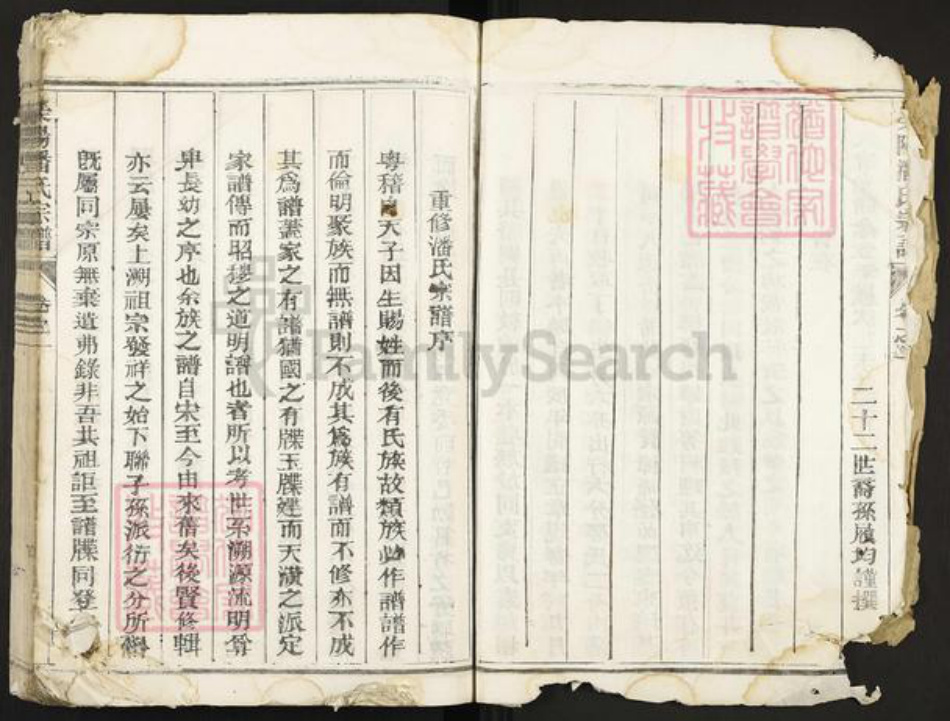 二十二世裔孫履均謹撰
重修潘氏宗譜序
粵稽自天子因生賜姓而後有氏族故類族此作譜譜作
而倫明聚族而無譜則不成其為族有譜而不修亦不成
其為譜蓋家之有譜猶國之有牒玉牒而天潢之派定
家譜傳而昭穆之道明譜也者所以考世系溯源流明尊
卑長幼之序也余族之譜自宋至今由來舊矣後賢修輯
亦云屢矣上溯祖宗發祥之始下聯子孫派衍之分所
既屬同宗原無棄遺弗錄非吾共祖詎至譜牒同登
潘氏宗譜
潘氏宗譜
譜學會
收藏
FamilySearch